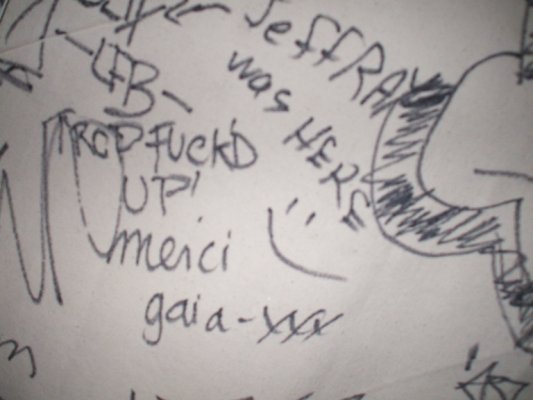 JeffRAY
was HERE
-LFB-
TROP FUCKD
UP!
merci
gaia-xxx